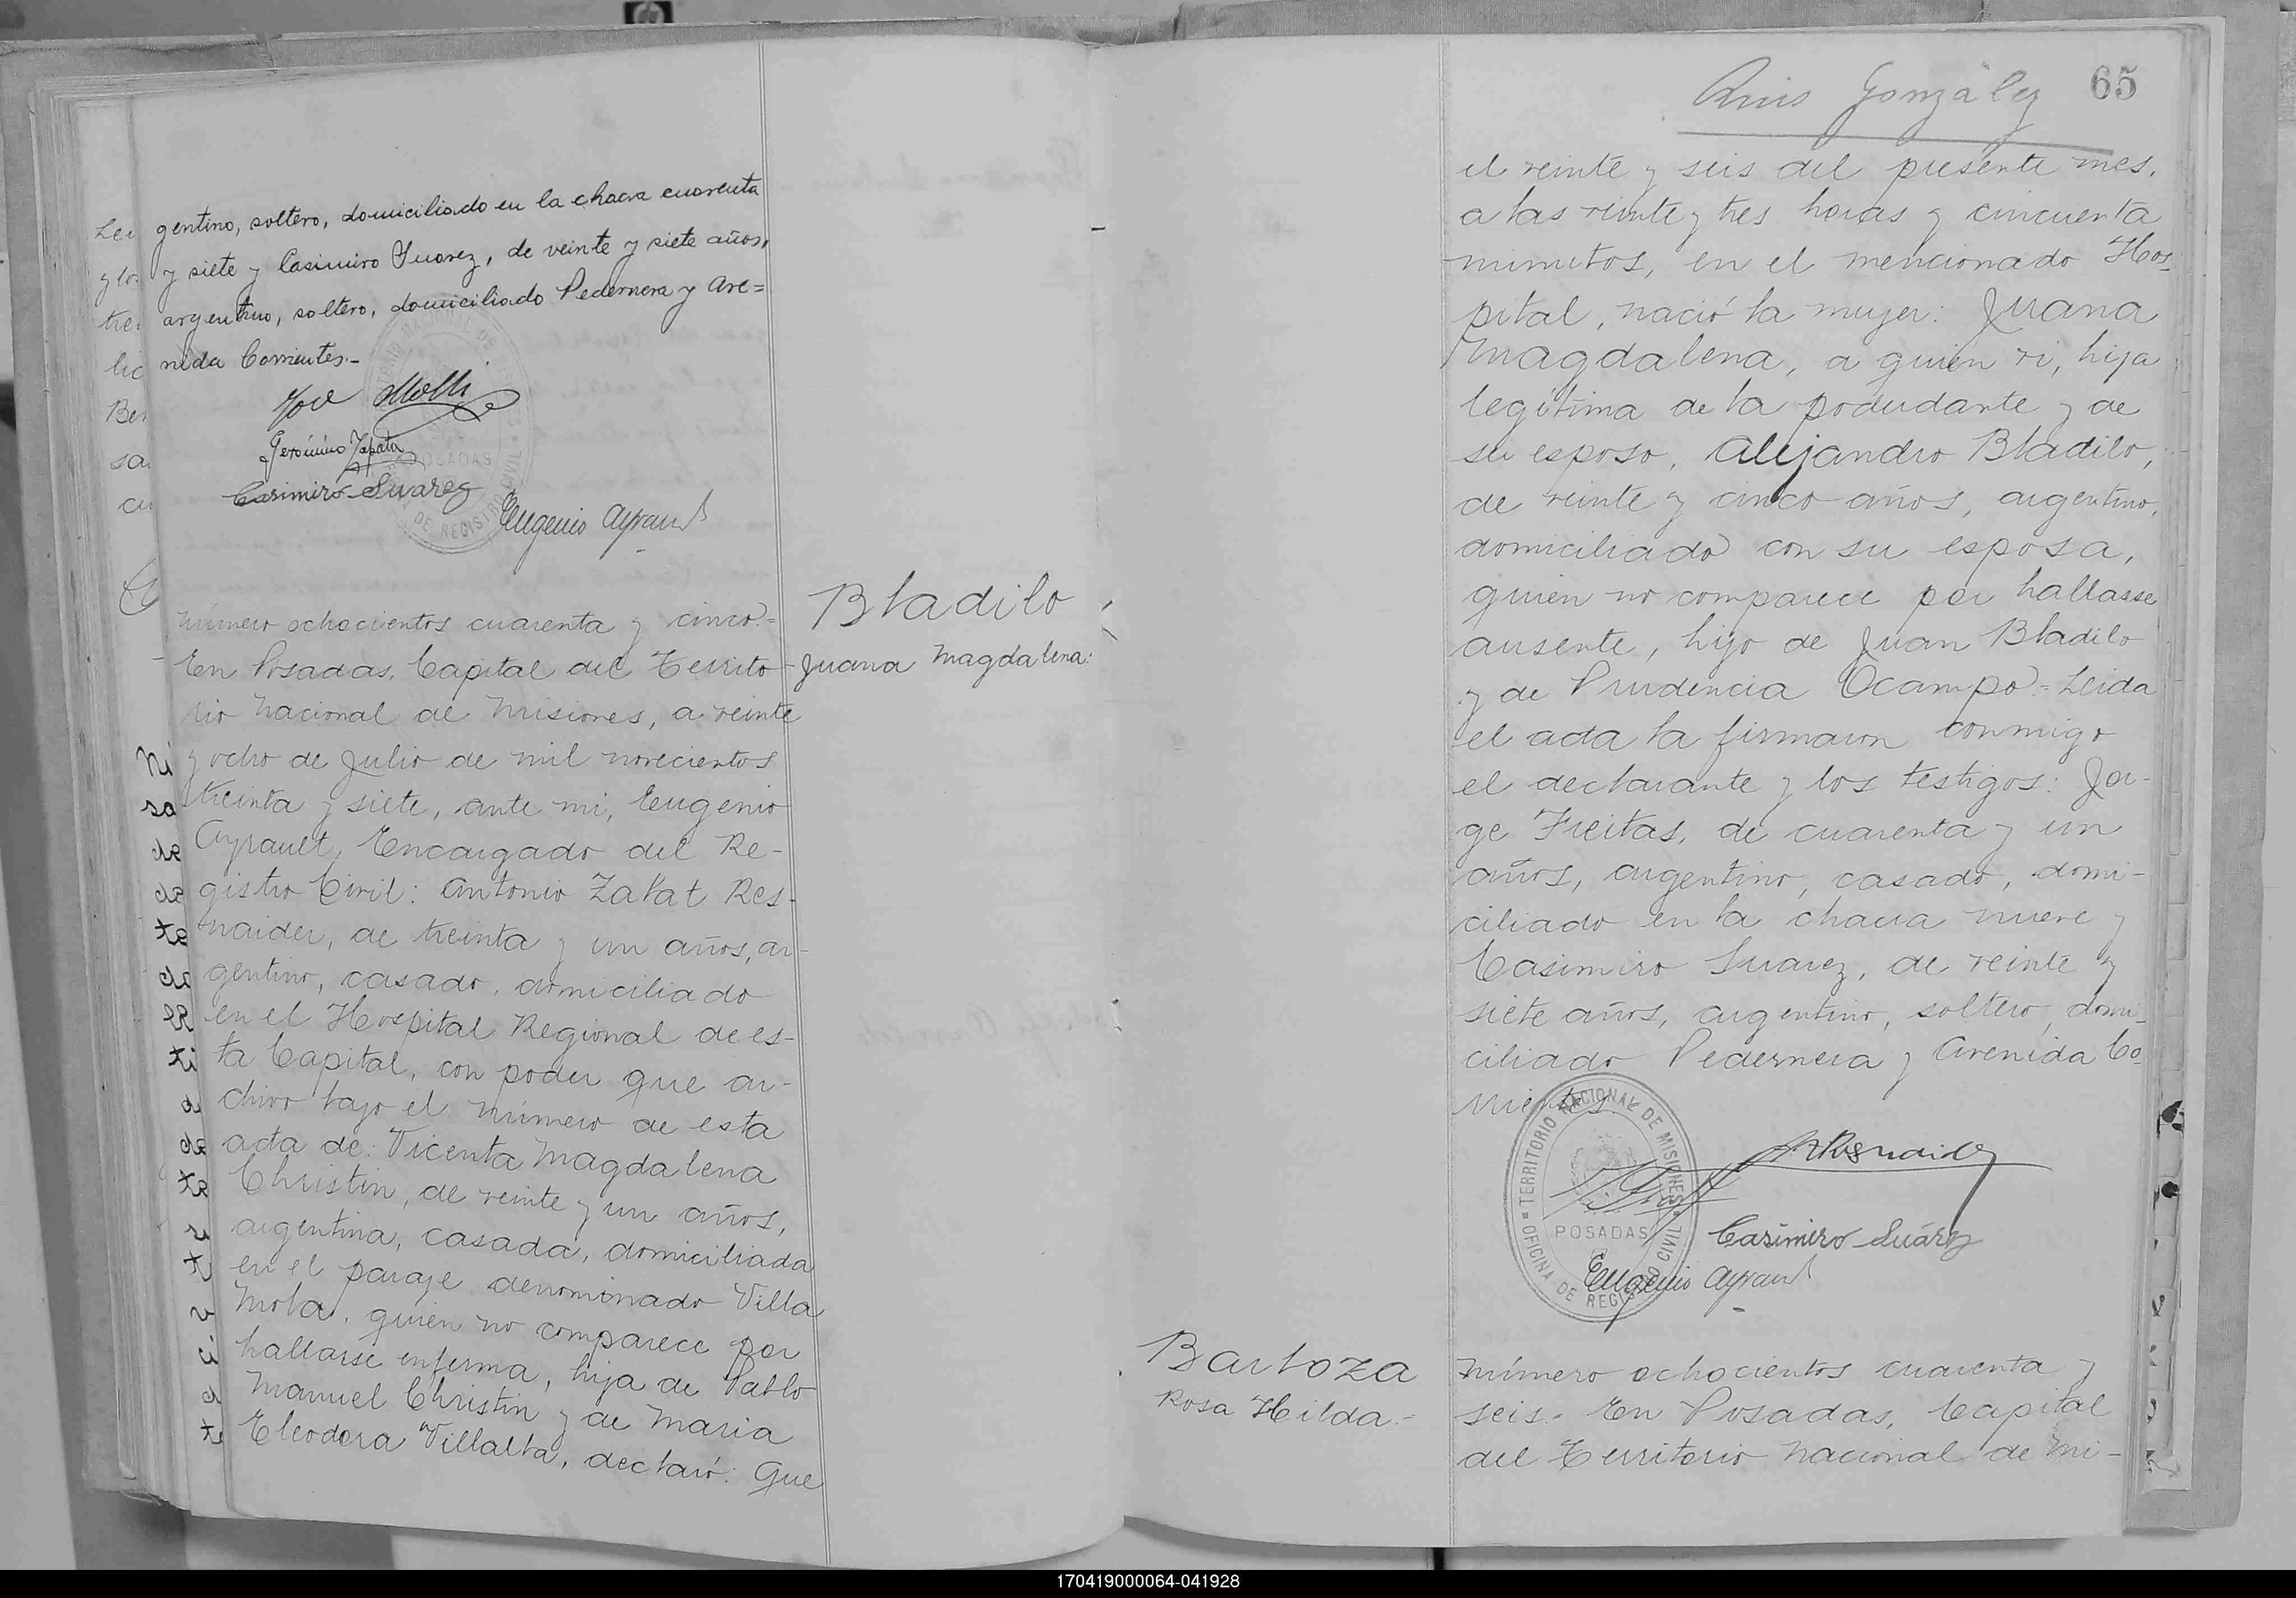 gentino, soltero, domiciliado en la chacra cuarenta
y siete y Casimiro Suarez, de veinte y siete años,
argentino, soltero, domiciliado Pedernera y Ave=
nida Corrientes.-
Gerónimo Zapata
Casimiro Suarez
Eugenio Ayrault
Bladilo
Juana Magdalena.
número ochocientos cuarenta y cinco.=
En Posadas, Capital del Territo-
rio Nacional de Misiones, a veinte
y ocho de Julio de mil novecientos
treinta y siete, ante mi, Eugenio
Ayrault, Encargado del Re-
gistro Civil: Antonio Zakat Res-
naider, de treinta y un años, ar-
gentino, casado, domiciliado
en el Hospital Regional de es-
ta Capital, con poder que ar-
chivo bajo el número de esta
acta de: Vicenta Magdalena
Christin, de veinte y un años,
argentina, casada, domiciliada
en el paraje denominado Villa
Mola, quien no comparece por
hallarse enferma, hija de Pablo
Manuel Christin y de Maria
Eleodora Villalba, declaró: Que
González
65
el veinte y seis del presente mes,
a las veinte y tres horas y cincuenta
minutos, en el mencionado Hos-
pital, nació la mujer: Juana
Magdalena, a quien vi, hija
legítima de la poderdante y de
su esposo, Alejandro Bladilo,
de veinte y cinco años, argentino,
domiciliado con su esposa,
quien no comparece por hallarse
ausente, hijo de Juan Bladilo
y de Prudencia Ocampo.= Leida
el acta la firmaron conmigo
el declarante y los testigos: Jor-
ge Freitas, de cuarenta y un
años, argentino, casado, domi-
ciliado en la chacra nueve y
Casimiro Suarez, de veinte y
siete años, argentino, soltero, domi-
ciliado Pedernera y Avenida Co-
rrientes.
TERRITORIO NACIONAL DE MISIONES
POSADAS
OFICINA DE REGISTRO CIVIL
Casimiro Suárez
Eugenio Ayrault
Barboza
Rosa Hilda.-
número ochocientos cuarenta y
seis.- En Posadas, Capital
del Territorio Nacional de Mi-
170419000064-041928